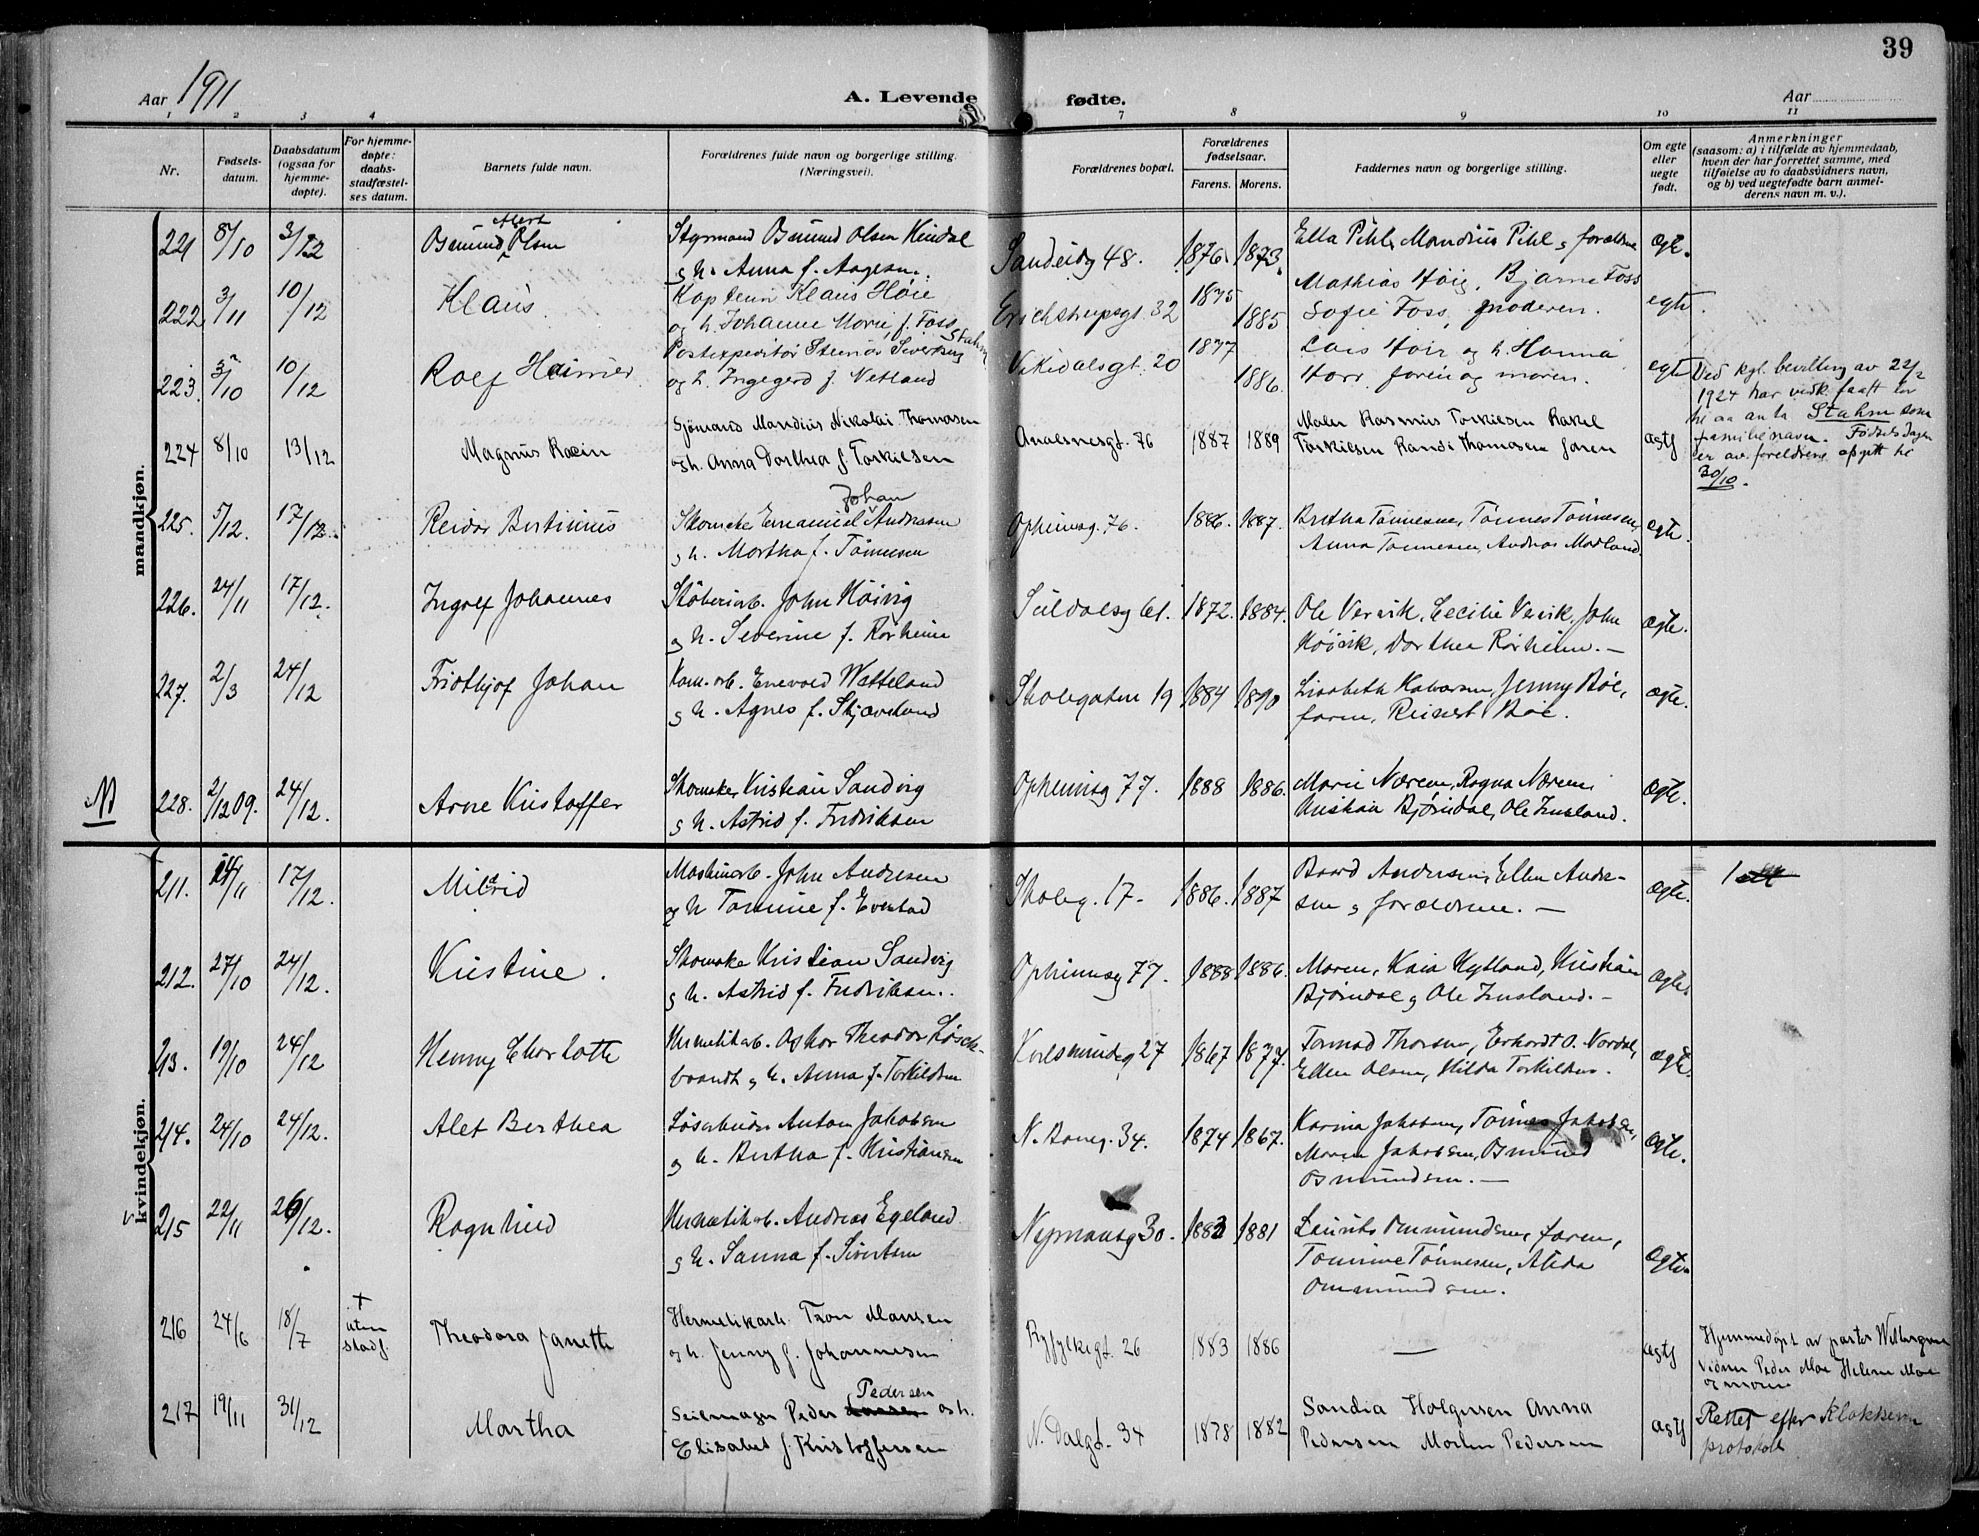 39
Aar 1911
A. Levende fødte.
Aar
1 2 3 4 7 8 9 10 11
Nr.
Fødsels-
datum.
Daabsdatum
(ogsaa for
hjemme-
døpte).
For hjemme-
døpte:
daabs-
stadfæstel-
ses datum.
Barnets fulde navn.
Forældrenes fulde navn og borgerlige stilling.
(Næringsvei).
Forældrenes bopæl.
Forældrenes
fødselsaar.
Farens. Morens.
Faddernes navn og borgerlige stilling.
Om egte
eller
uegte
født.
Anmerkninger
(saasom: a) i tilfælde av hjemmedaab,
hvem der har forrettet samme, med
tilføielse av to daabsvidners navn,
og b) ved uegtefødte barn anmel-
derens navn m. v.).
mandkjøn.
221 8/10 3/12 Osmund Olsen Styrmand Osmund Olsen
og h. Anna f. Aagesen. Sandeidg 48. 1876. 1873. Ella Pihl, Mandius Pihl og forældrene ægte.
222 3/11 10/12 Klaus Kaptein Klaus Høie
og h. Johanne Marie f. Foss Erichstrupsgt. 32 1875 1885 Mathias Høie, Bjarne Foss
Sofie Foss, moderen. egte.
223. 3/10 10/12 Rolf Heimer Postexpeditør Steinar Sivertsen Stahm
og h. Ingegerd f. Natland Vikedalsgt. 20 1877 1886. Lars Høie og h. Hanna
faren og moren. egte
Ved kgl. bevilling av 22/2
1924 har vedk. faatt lov
til aa anta Stahm som
familienavn. Fødselsdagen
er av foreldrene opgitt til
30/10.
224 8/10 13/12 Magnus Rein Sjømand Mandius Nikolai Thomasen
og h. Anna Dorthea f. Torkilsen 76 1887 1889 Maler Rasmus Torkilsen Rakel
Torkilsen Randi Thomasen faren ægte
225. 5/12. 17/12. Reidar Bertinius Skomaker Emanuel Johan Andreasen
og h. Martha f. Tønnesen Opheimsg. 76. 1886. 1887. Bertha Tønnesen, Tønnes Tønnesen,
Anna Tønnesen, Andreas Madland ægte.
226. 24/11 17/12. Ingolf Johannes Støberiarb. John Høivig
og h. Severine f. Rørheim Suldalsg 61. 1872. 1884. Ole Vervik, Cecilie Vervik, John
Høivik, Dorthea Rørheim. — ægte.
227. 2/3 24/12 Fridthjof Johan Kom. arb. Enevald Watteland
og h. Agnes f. Skjæveland Skolegaten 19 1884 1890 Lisabeth Halvorsen, Jenny Bøe,
faren, Reinert Bøe. ægte.
N 228. 2/12 09. 24/12. Arne Kristoffer Skomaker Kristian Sandvig
og h. Astrid f. Fredriksen Opheimsg 77. 1888 1886. Marie Nærem, Ragna Nærem,
Kristian Bjørndal, Ole Tensland. ægte.
kvindekjøn.
211. 24/11 17/12. Milrid Maskinarb. John Andresen
og h Tomine f. Evertad Skoleg. 17. 1886. 1887 Baard Andersen, Ellen Andre-
sen og forældrene. — ægte.
212. 27/10 24/12. Kristine. Skomake Kristian Sandvig
og h. Astrid f. Fredriksen. Opheimsg 77. 1888 1886. Moren, Kaia Hytland, Kristian
Bjørndal og Ole Tensland. - ægte.
213. 19/10 24/12 Henny Charlotte Hermetikarb. Oskar Theodor Løsch-
brandt og h. Anna f. Torkildsen Karlsmindeg 27 1867 1877. Tormod Thorsen, Erhardt O. Nordal,
Ellen Olsen, Hilda Torkildsen. ægte.
214. 24/10 24/12. Alet Berthea Løsarbeider Anton Jakobsen
og h. Bertha f. Kristiansen N. Baneg. 34. 1874 1867. Karina Jakobsen, Tønnes Jakobsen,
Maren Jakobsen, Osmund
Osmundsen. — ægte.
215 22/11 26/12. Ragnhild Hermetikarb. Andreas Egeland
og h. Sanna f. Sivertsen Nymansg 30. 1883 1881 Laurits Ommundsen, faren,
Tomine Tønnesen, Alida
Ommundsen. ægte.
216 24/6 18/7 + uten
stadf. Theodora Janette Hermetikarb. Tron Hansen
og h. Jenny f. Johannesen Ryfylkegt. 26 1883 1886 — ægte Hjemmedøpt av pastor
vidner Peder Moe Helene Moe
og moren
217 19/11 31/12 Martha Seilmager Peder Pedersen og h.
Elisabet f. Kristoffersen N. Dalgt. 34 1878 1882 Sandia Holgersen Anna
Pedersen Morten Pedersen ægte Rettet efter Klokkerens
protokol